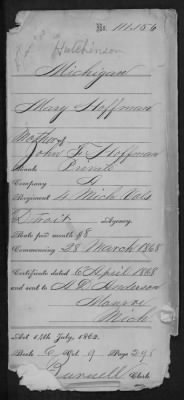 No. 111.156
Hutchinson
Michigan
Mary Hoffman
Mother of
John F. Hoffman
Private
Company G
Regiment 4 Mich Vols
Detroit Agency.
Rate per month $8
Commencing 28 March 1868
Certificate dated 6 April 1868
and sent to A. D. Anderson
Monroe
Mich
Act 14th July, 1862.
Book 6 Vol. 9 Page 298
Burnell Clerk